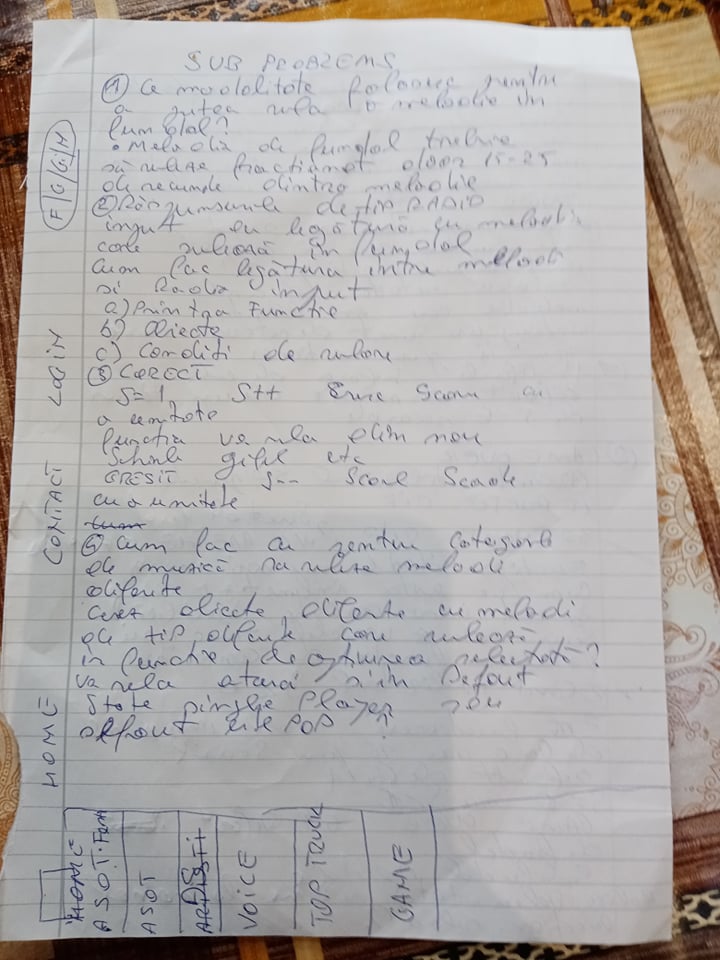 SUB PROBLEMS
1 Ce modalitate folosesc pentru
a putea rula o melodie in
fundal?
• Melodia de fundal trebuie
să ruleze fractionat doar 15-25
de secunde dintro melodie
2 Răspunsurile de tip RADIO
input au legătură cu melodia
care rulează în fundal
Cum fac legătura intre melodi
si Radio input
a) Printro Functie
b) Obiecte
c) Conditi de rulare
3 CORECT
S=1, S++ Scorul cu
o unitate
functia va rula din nou
Schimb giful etc
GRESIT S-- Scorul Scade
cu o unitate
Cum
4 Cum fac ca pentru Categoria
de muzică sa ruleze melodi
diferite
Creez obiecte diferite cu melodi
de tip diferite care rulează
în functie de optiunea selectată?
va rula atunci si in Default
State single Player sau
default este POP?
F/G/G/H
LOGIN
CONTACT
HOME
HOME
ASOT
ASOT
VOICE
TOP TRUCK
GAME